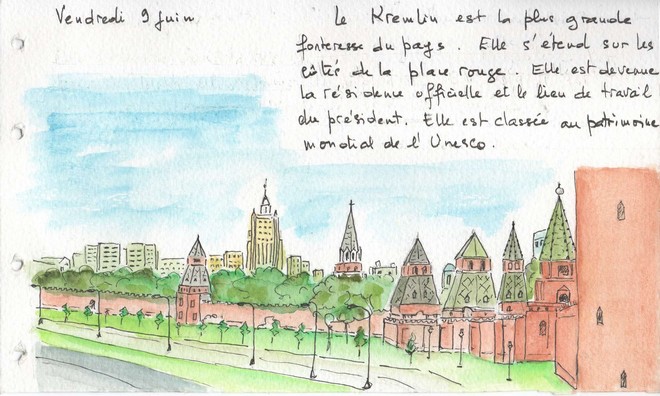 Vendredi 9 juin
Le Kremlin est la plus grande
forteresse du pays. Elle s'étend sur les
côtés de la place rouge. Elle est devenue
la résidence officielle et le lieu de travail
du président. Elle est classée au patrimoine
mondial de l'Unesco.